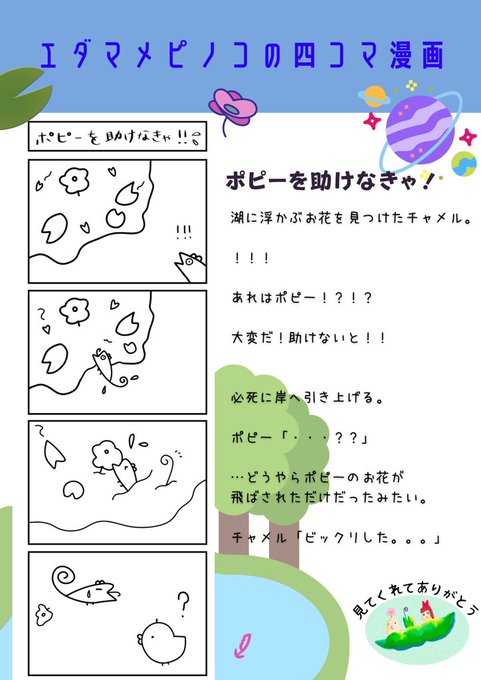 エダマメピノコの四コマ漫画
ポピーを助けなきゃ!!
!!!
?
ポピーを助けなきゃ!
湖に浮かぶお花を見つけたチャメル。
!!!
あれはポピー!?!?
大変だ!助けないと!!
必死に岸へ引き上げる。
ポピー「・・・??」
…どうやらポピーのお花が
飛ばされただけだったみたい。
チャメル「ビックリした。。。」
見てくれてありがとう